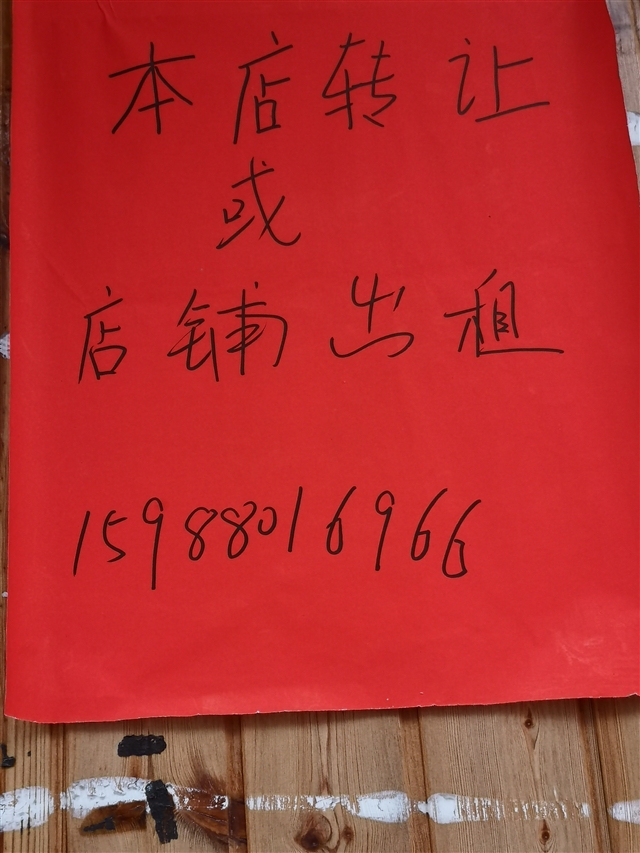 本店转让
或
店铺出租
15988016966